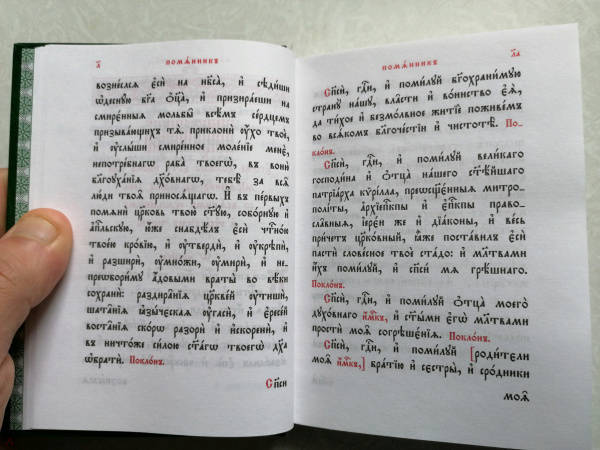 л҃
помѧ́нникъ
вознеслсѧ є҆сѝ на нб҃са̀, и҆ сѣди́ши
ѡ҆деснꙋ́ю бг҃а ѻ҆ц҃а̀, и҆ призира́еши на
смирє́нныѧ мольбы̀ всѣ́мъ се́рдцемъ
призыва́ющихъ тѧ̀. приклонѝ ᲂу҆́хо твоѐ,
и҆ ᲂу҆слы́ши смире́нное моле́нїе менє̀,
непотре́бнагѡ раба̀ твоегѡ̀, въ воню̀
бл҃гоꙋха́нїѧ дх҃о́внагѡ, тебѣ̀ за всѧ̑
лю́ди твоѧ̑ принося́щагѡ. И҆ въ пе́рвыхъ
помѧнѝ цр҃ковь твою̀ ст҃ꙋ́ю, собо́рнꙋю и҆
а҆пⷭ҇льскꙋю, ю҆́же снабдѣ́лъ є҆сѝ чⷭ҇тно́ю
твое́ю кро́вїю, и҆ ᲂу҆твердѝ, и҆ ᲂу҆крѣпѝ,
и҆ разширѝ, ᲂу҆мно́жи, ᲂу҆мирѝ, и҆ не-
преѡбори́мꙋ а҆́довыми враты̀ во вѣ́ки
сохранѝ: раздира̑нїѧ цр҃кве́й ᲂу҆тишѝ,
шата̑нїѧ ꙗ҆зы́чєскаѧ ᲂу҆гасѝ, и҆ є҆ресе́й
воста̑нїѧ ско́рѡ разорѝ и҆ и҆скоренѝ, и҆
въ ничто́же си́лою ст҃а́гѡ твоегѡ̀ дх҃а
ѡ҆братѝ. Покло́нъ.
Сп҃сѝ
помѧ́нникъ
л҃а
Сп҃сѝ, гдⷭ҇и, и҆ поми́лꙋй бг҃охрани́мꙋю
странꙋ̀ на́шꙋ, вла̑сти и҆ во́инство є҆ѧ̀,
да ти́хое и҆ безмо́лвное житїѐ поживе́мъ
во всѧ́комъ бл҃гоче́стїи и҆ чистотѣ̀. По-
кло́нъ.
Сп҃сѝ, гдⷭ҇и, и҆ поми́лꙋй вели́каго
господи́на и҆ ѻ҆тца̀ на́шего ст҃ѣ́йшаго
патрїа́рха кѷрі́лла, преѡсщ҃є́нныѧ митро-
поли́ты, а҆рхїепⷭ҇кпы и҆ є҆пⷭ҇кпы право-
сла̑вныѧ, і҆ере́и же и҆ дїа́коны, и҆ ве́сь
при́четъ цр҃ко́вный, ꙗ҆̀же поста́вилъ є҆сѝ
пастѝ слове́сное твоѐ ста́до: и҆ мл҃твами
и҆́хъ поми́лꙋй и҆ сп҃сѝ мѧ̀ грѣ́шнаго.
Покло́нъ.
Сп҃сѝ, гдⷭ҇и, и҆ поми́лꙋй ѻ҆тца̀ моего̀
дꙋхо́внаго и҆́м҃къ, и҆ ст҃ы́ми є҆гѡ̀ мл҃твами
простѝ моѧ̑ согрѣшє́нїѧ. Покло́нъ.
Сп҃сѝ, гдⷭ҇и, и҆ поми́лꙋй [роди́тели
моѧ̑ и҆́м҃къ,] бра́тїю и҆ сєстры̀, и҆ сро́дники
моѧ̑